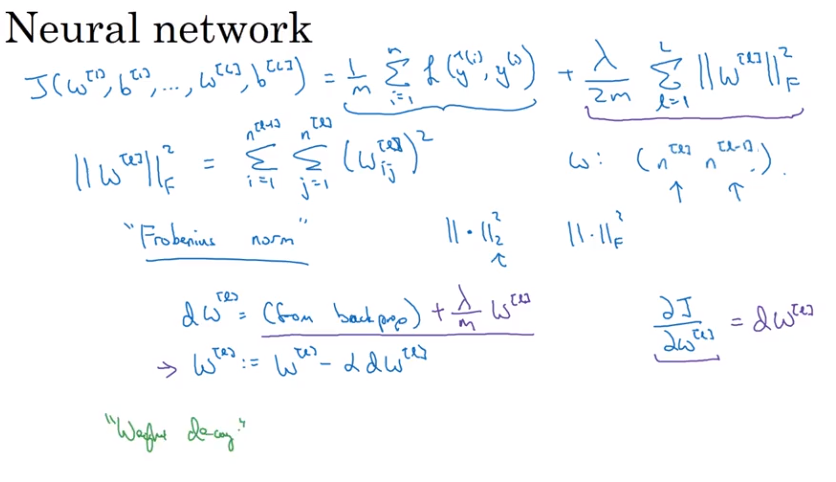 Neural network
J(ω^[1], b^[1], ..., ω^[L], b^[L]) = 1/m ∑_{i=1}^{n} L(ŷ^(i), y^(i)) + λ/2m ∑_{l=1}^{L} ||ω^[l]||_F^2
||ω^[l]||_F^2 = ∑_{i=1}^{n^[l-1]} ∑_{j=1}^{n^[l]} (ω_{ij}^[l])^2 ω: (n^[l] n^[l-1]).
"Frobenius norm" ||·||_2^2 ||·||_F^2
dω^[l] = (from backprop) + λ/m ω^[l] ∂J/∂ω^[l] = dω^[l]
→ ω^[l] := ω^[l] - α dω^[l]
"Weight decay"